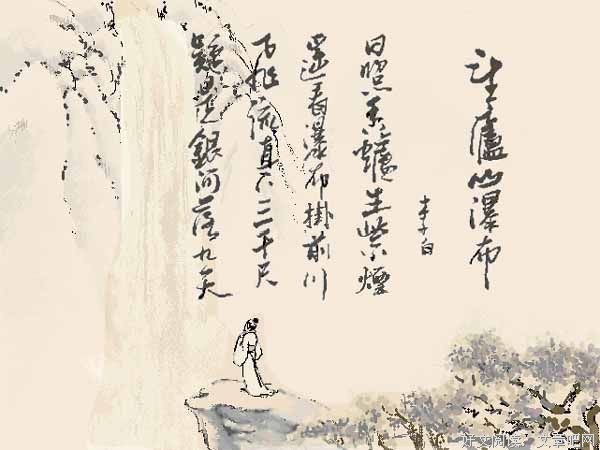 望廬山瀑布
李白
日照香爐生紫煙
遙看瀑布掛前川
飛流直下三千尺
疑是銀河落九天
好文阅读：文章吧网